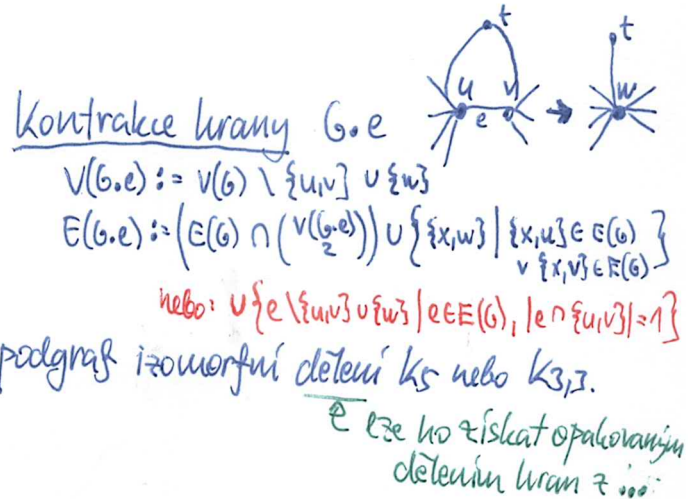 t
t
u v w
e
Kontrakce hrany G.e
V(G.e) := V(G) \ {u,v} ∪ {w}
E(G.e) := (E(G) ∩ (V(G.e) 2)) ∪ {{x,w} | {x,u} ∈ E(G)
∨ {x,v} ∈ E(G)}
nebo: ∪ {e \ {u,v} ∪ {w} | e ∈ E(G), |e ∩ {u,v}| = 1}
podgraf izomorfní dělení K5 nebo K3,3.
lze ho získat opakovaným
dělením hran z ...